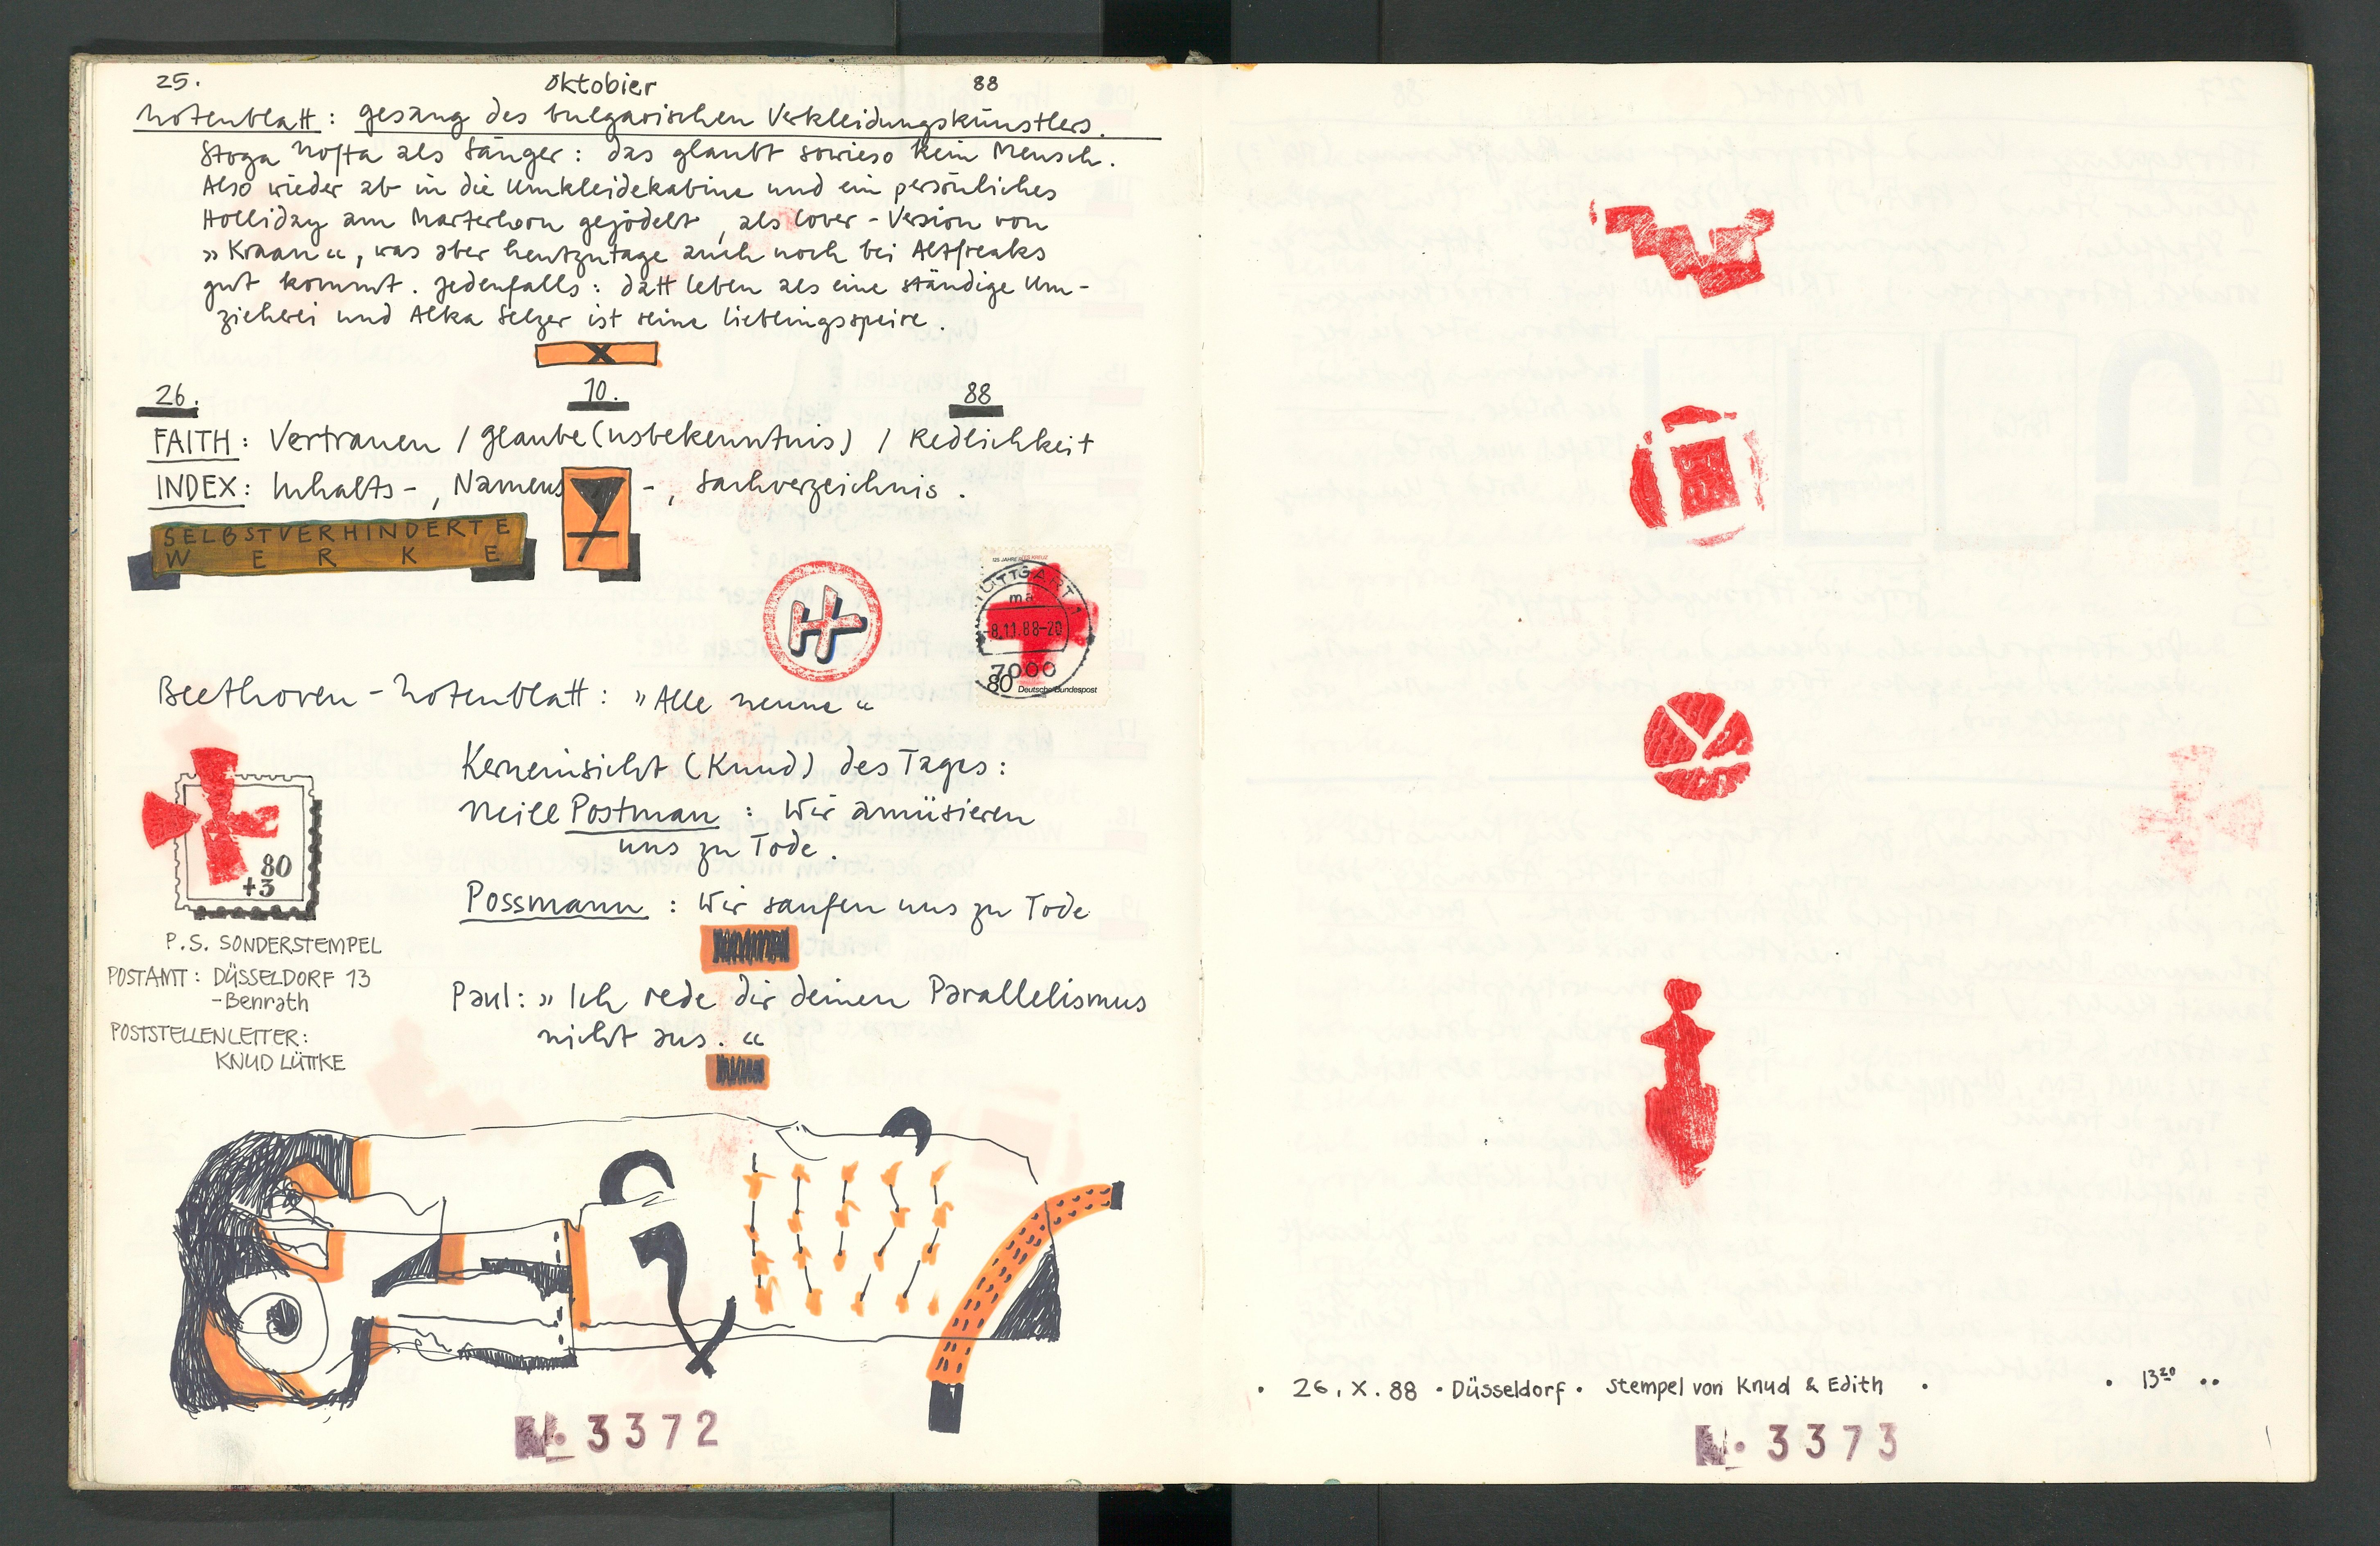 25. Oktobier 88
Notenblatt: gesang des bulgarischen Verkleidungskünstlers.
Stoga Nofta als Sänger: das glaubt sowieso kein Mensch.
Also wieder ab in die Umkleidekabine und ein persönliches
Holliday am Marterhorn gejödelt, als Cover-Version von
»Kraan«, was aber heutzutage auch noch bei Altfreaks
gut kommt. Jedenfalls: datt Leben als eine ständige Um-
zieherei und Alka Selzer ist seine Lieblingsspeise.
X
26. 10. 88
FAITH: Vertrauen / Glaube(nsbekenntnis) / Redlichkeit
INDEX: Inhalts-, Namens-, Sachverzeichnis.
SELBSTVERHINDERTE
WERKE
125 JAHRE ROTES KREUZ
STUTTGART 1
ma
8.11.88-20
7000
80 Deutsche Bundespost
Beethoven-Notenblatt: »Alle neune«
Kerneinsicht (Knud) des Tages:
Neill Postman: Wir amüsieren
uns zu Tode.
Possmann: Wir saufen uns zu Tode
Paul: »Ich rede dir deinen Parallelismus
nicht aus.«
80
+3
P.S. SONDERSTEMPEL
POSTAMT: DÜSSELDORF 13
-Benrath
POSTSTELLENLEITER:
KNUD LÜTTKE
N. 3372
• 26. X. 88 • Düsseldorf • Stempel von Knud & Edith • • 13 20 ••
N. 3373